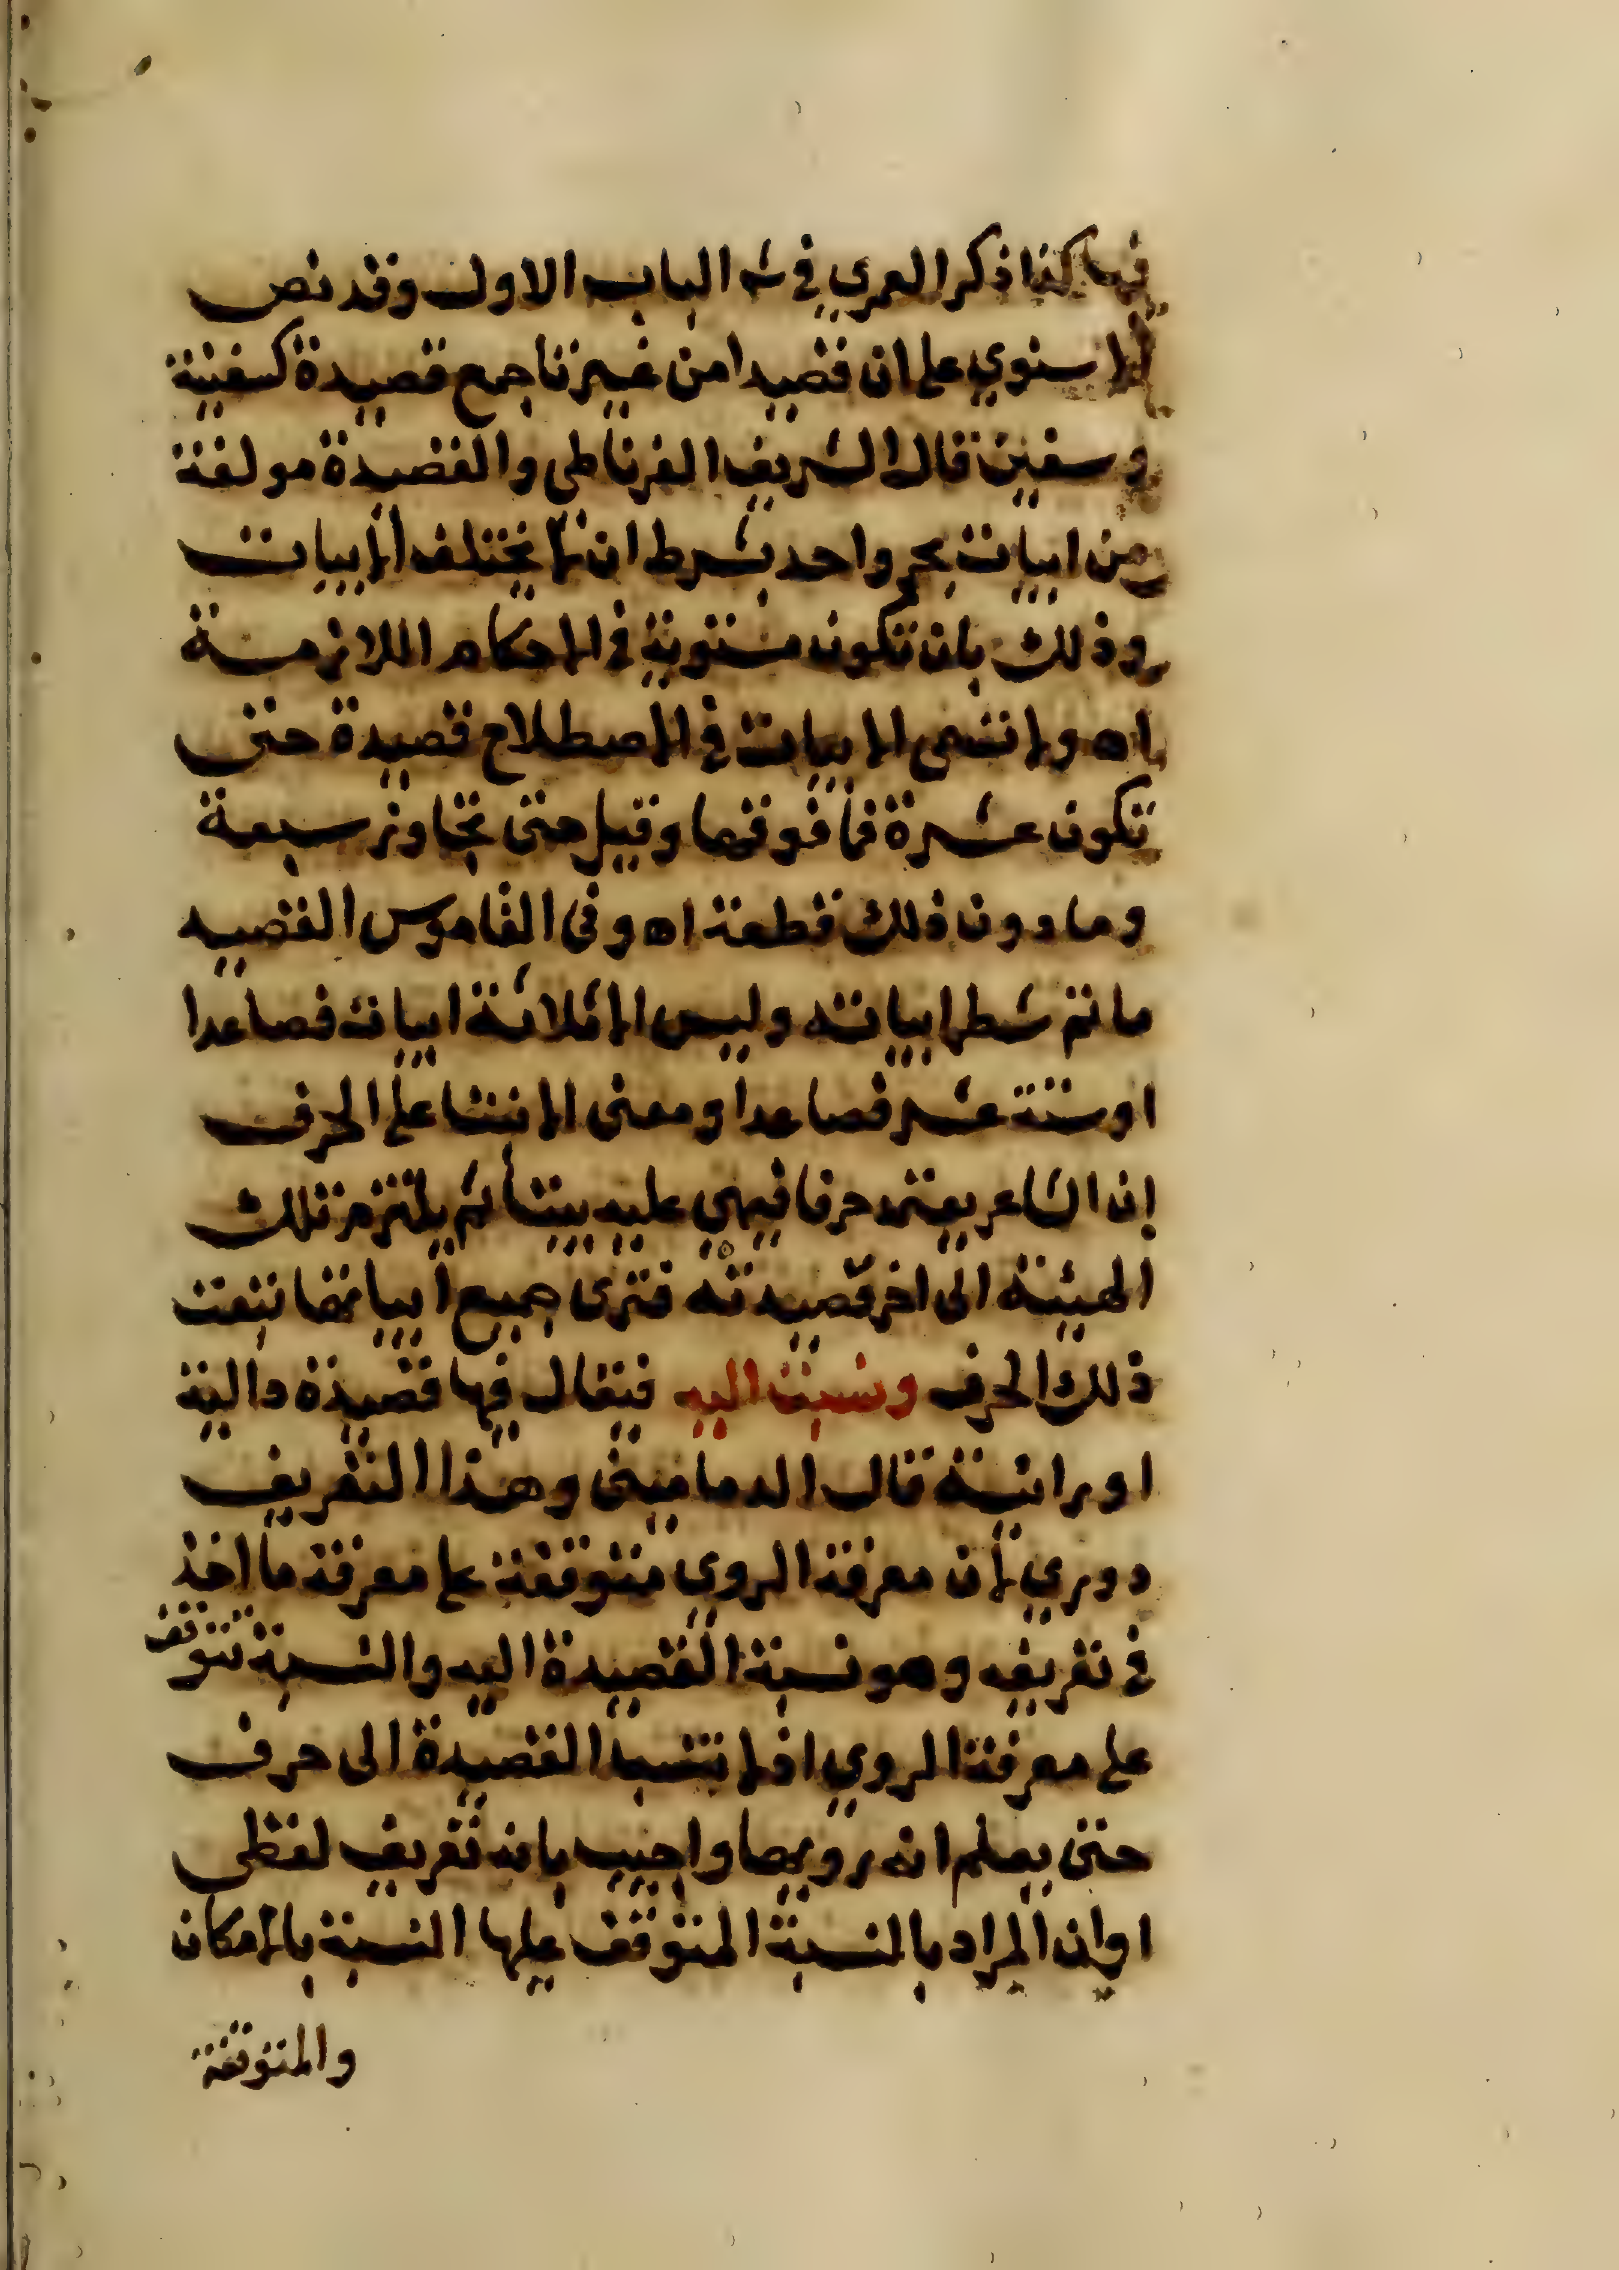 فيها كذا ذكر العمري في شه الباب الاول وقد نص
الاسنوي على ان قصيدا من غير تا جمع قصيدة كسفينة
وسفين قال الشريف الغرناطي والقصيدة مولفة
من ابيات بحر واحد بشرط ان لا يختلف الابيات
وذلك بان تكون مستوية في الاحكام اللازمة
اه ولا تسمى الابيات في الاصطلاح قصيدة حتى
تكون عشرة فما فوقها وقيل حتى تجاوز سبعة
وما دون ذلك قطعة اه وفي القاموس القصيد
ما تم شطر ابياته وليس الا ثلاثة ابيات فصاعدا
او ستة عشر فصاعدا ومعنى الانشا على الحرف
ان الشاعر يعتمد حرفا فيبني عليه بيتا ثم يلتزم تلك
الهيئة الى اخر قصيدته فترى جميع ابياتها تبعت
ذلك الحرف ونسبت اليه فيقال فيها قصيدة دالية
او رائية قال الدماميني وهذا التعريف
دوري لان معرفة الروي متوقفة على معرفة ما اخذ
في تعريفه وهو نسبة القصيدة اليه والنسبة تتوقف
على معرفة الروي اذ لا تنسب القصيدة الى حرف
حتى يعلم انه رويها واجيب بانه تعريف لفظي
او ان المراد بالنسبة المتوقف عليها النسبة بالامكان
والمتوقفة